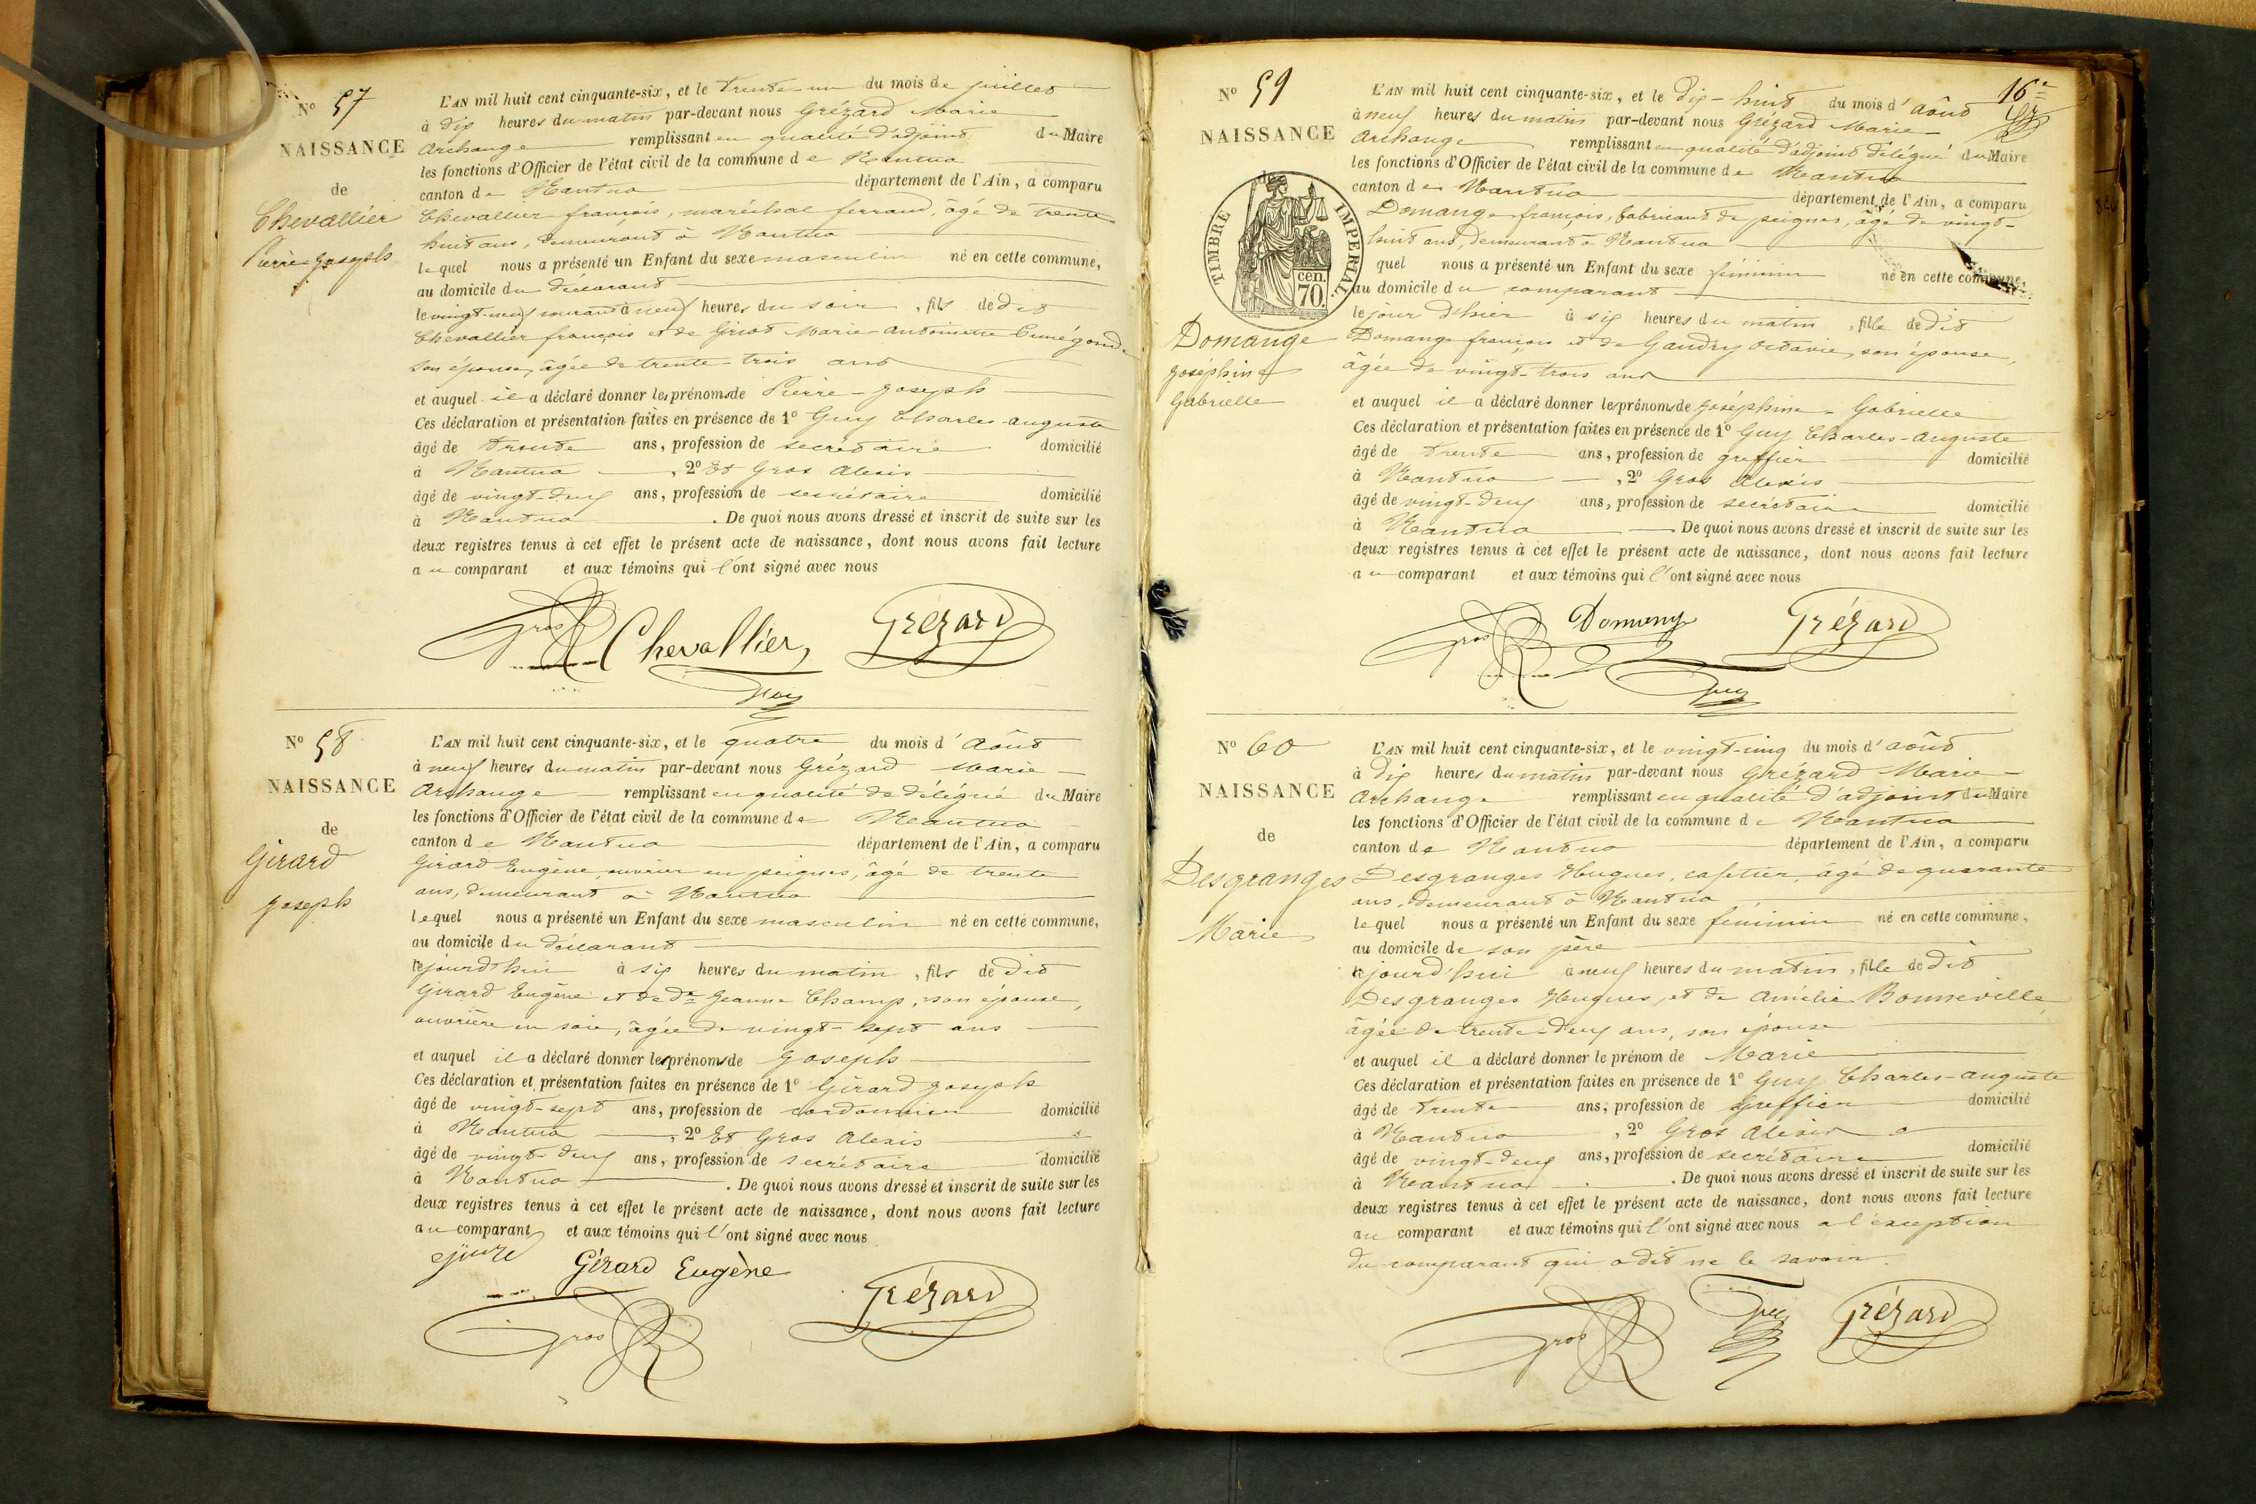 N° 57
NAISSANCE
de
Chevallier
Pierre-Joseph
L'AN mil huit cent cinquante-six, et le trente-un du mois de juillet
à dix heures du matin par-devant nous Grézard Marie
Archange remplissant en qualité d'adjoint du Maire
les fonctions d'Officier de l'état civil de la commune de Nantua
canton de Nantua département de l'Ain, a comparu
Chevallier françois, maréchal ferrand, âgé de trente
huit ans, demeurant à Nantua
lequel nous a présenté un Enfant du sexe masculin né en cette commune,
au domicile du déclarant
le vingt-neuf courant à neuf heures du soir, fils de dit
Chevallier françois et de Griot Marie Antoinette Cunégonde
son épouse, âgée de trente-trois ans
et auquel il a déclaré donner les prénoms de Pierre-Joseph
Ces déclaration et présentation faites en présence de 1° Guy Charles-Auguste
âgé de trente ans, profession de secrétaire domicilié
à Nantua, 2° Et Gros Alexis
âgé de vingt-deux ans, profession de secrétaire domicilié
à Nantua. De quoi nous avons dressé et inscrit de suite sur les
deux registres tenus à cet effet le présent acte de naissance, dont nous avons fait lecture
au comparant et aux témoins qui l'ont signé avec nous
Gros Chevallier Grézard
Guy
N° 58
NAISSANCE
de
Girard
Joseph
L'AN mil huit cent cinquante-six, et le quatre du mois d'Août
à neuf heures du matin par-devant nous Grézard Marie
Archange remplissant en qualité de délégué du Maire
les fonctions d'Officier de l'état civil de la commune de Nantua
canton de Nantua département de l'Ain, a comparu
Girard Eugène, ouvrier en peignes, âgé de trente
ans, demeurant à Nantua
lequel nous a présenté un Enfant du sexe masculin né en cette commune,
au domicile du déclarant
le jourd'hui à six heures du matin, fils de dit
Girard Eugène et de De Jeanne Champ, son épouse,
ouvrière en soie, âgée de vingt-sept ans
et auquel il a déclaré donner les prénoms de Joseph
Ces déclaration et présentation faites en présence de 1° Girard Joseph
âgé de vingt-sept ans, profession de cordonnier domicilié
à Nantua, 2° Et Gros Alexis
âgé de vingt-deux ans, profession de secrétaire domicilié
à Nantua. De quoi nous avons dressé et inscrit de suite sur les
deux registres tenus à cet effet le présent acte de naissance, dont nous avons fait lecture
au comparant et aux témoins qui l'ont signé avec nous
Gérard Eugène
Gros Grézard
N° 59
NAISSANCE
de
TIMBRE IMPERIAL
70 cen.
Domange
Joséphine
Gabrielle
16e
L'AN mil huit cent cinquante-six, et le dix-huit du mois d'Août
à neuf heures du matin par-devant nous Grézard Marie
Archange remplissant en qualité d'adjoint délégué du Maire
les fonctions d'Officier de l'état civil de la commune de Nantua
canton de Nantua département de l'Ain, a comparu
Domange françois, fabricant de peignes, âgé de vingt-
huit ans, demeurant à Nantua
quel nous a présenté un Enfant du sexe féminin né en cette commune,
au domicile du comparant
le jour d'hier à six heures du matin, fille de dit
Domange françois et de Gaudry Octavie, son épouse,
âgée de vingt-trois ans
et auquel il a déclaré donner les prénoms de Joséphine-Gabrielle
Ces déclaration et présentation faites en présence de 1° Guy Charles-Auguste
âgé de trente ans, profession de greffier domicilié
à Nantua, 2° Gros Alexis
âgé de vingt-deux ans, profession de secrétaire domicilié
à Nantua De quoi nous avons dressé et inscrit de suite sur les
deux registres tenus à cet effet le présent acte de naissance, dont nous avons fait lecture
au comparant et aux témoins qui l'ont signé avec nous
Gros Grézard
Guy
N° 60
NAISSANCE
de
Desgranges
Marie
L'AN mil huit cent cinquante-six, et le vingt-cinq du mois d'Août
à dix heures du matin par-devant nous Grézard Marie-
Archange remplissant en qualité d'adjoint du Maire
les fonctions d'Officier de l'état civil de la commune de Nantua
canton de Nantua département de l'Ain, a comparu
Desgranges Hugues, cafetier, âgé de quarante
ans, demeurant à Nantua
lequel nous a présenté un Enfant du sexe féminin né en cette commune,
au domicile de son père
le jourd'hui à neuf heures du matin, fille de dit
Desgranges Hugues, et de Amélie Bonneville
âgée de trente-deux ans, son épouse
et auquel il a déclaré donner le prénom de Marie
Ces déclaration et présentation faites en présence de 1° Guy Charles-Auguste
âgé de trente ans, profession de greffier domicilié
à Nantua, 2° Gros Alexis
âgé de vingt-deux ans, profession de secrétaire domicilié
à Nantua. De quoi nous avons dressé et inscrit de suite sur les
deux registres tenus à cet effet le présent acte de naissance, dont nous avons fait lecture
au comparant et aux témoins qui l'ont signé avec nous a l'exception
du comparant qui a dit ne le savoir.
Gros Guy Grézard